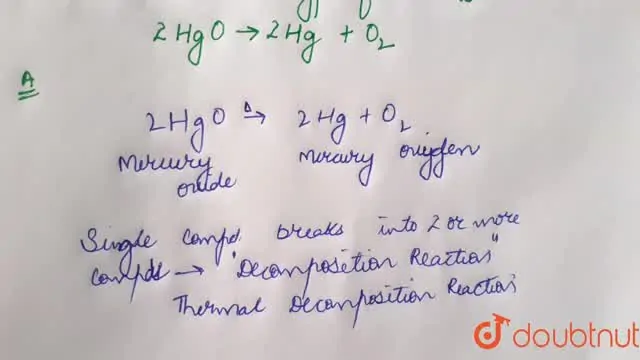 2HgO → 2Hg + O₂
A
2HgO Δ→ 2Hg + O₂
Mercury mercury oxygen
oxide
Single compd. breaks into 2 or more
compds → "Decomposition Reaction"
Thermal Decomposition Reaction
doubtnut